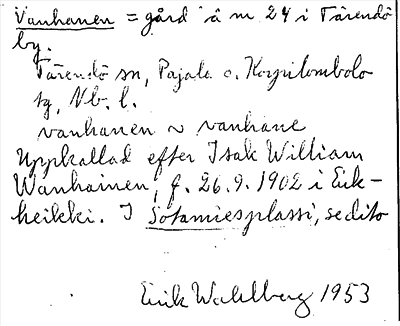 Vanhanen = gård å m 24 i Tärendö
by.
Tärendö sn, Pajala o. Korpilombolo
tg, Nb. l.
vanhanen ~ vanhane
Uppkallad efter Isak William
Wanhainen, f. 26.9.1902 i Erk-
heikki. I Sotamiesplassi, se dito
Erik Wahlberg 1953